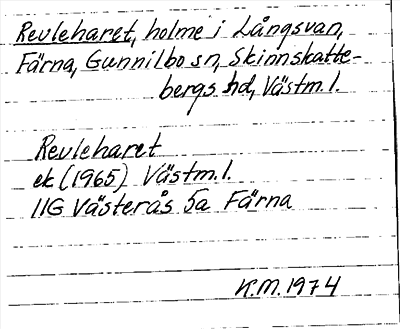 Revleharet, holme i Långsvan,
Färna, Gunnilbo sn, Skinnskatte-
bergs hd, Västm. l.
Revleharet
ek (1965) Västm. l.
11G Västerås 5a Färna
K.M. 1974